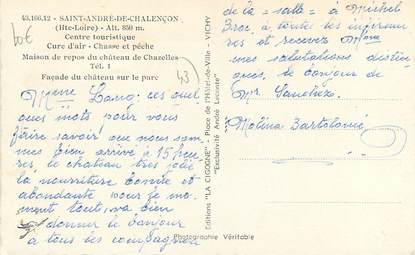 43.166.12 - SAINT-ANDRÉ-DE-CHALENÇON
(Hte-Loire) - Alt. 850 m.
Centre touristique
Cure d'air - Chasse et pêche
Maison de repos du château de Chazelles
Tél. 1
Façade du château sur le parc
43
Mme Lang, ces quel
ques mots pour vous
faire savoir que nous som
mes bien arrivé à 15 heu
res, le château très jolie
la nourriture bonne et
abondante pour le mo
ment tout va bien
donner le bonjour
à tous les compagnons
Editions "LA CIGOGNE" - Place de l'Hôtel-de-Ville - VICHY
"Exclusivité André Leconte"
Photographie Véritable
de la "salle" à Michel
Broc, à toutes les infirmiè
res et recevez Mme
mes salutations distin
gués, le bonjour de
Mr. Sanchez
Molina Bartolomé